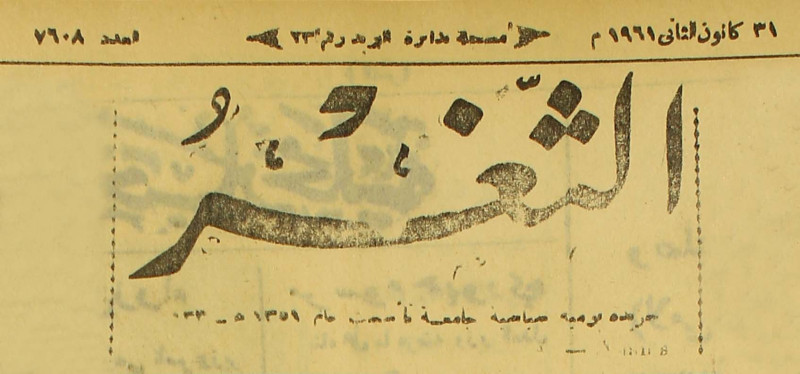 ٣١ كانون الثاني ١٩٦١ م مسجلة بدائرة البريد رقم ٢٣ العدد ٧٦٠٨
الثَّغْرُ
جريدة يومية سياسية جامعة تأسست عام ١٣٥١ هـ